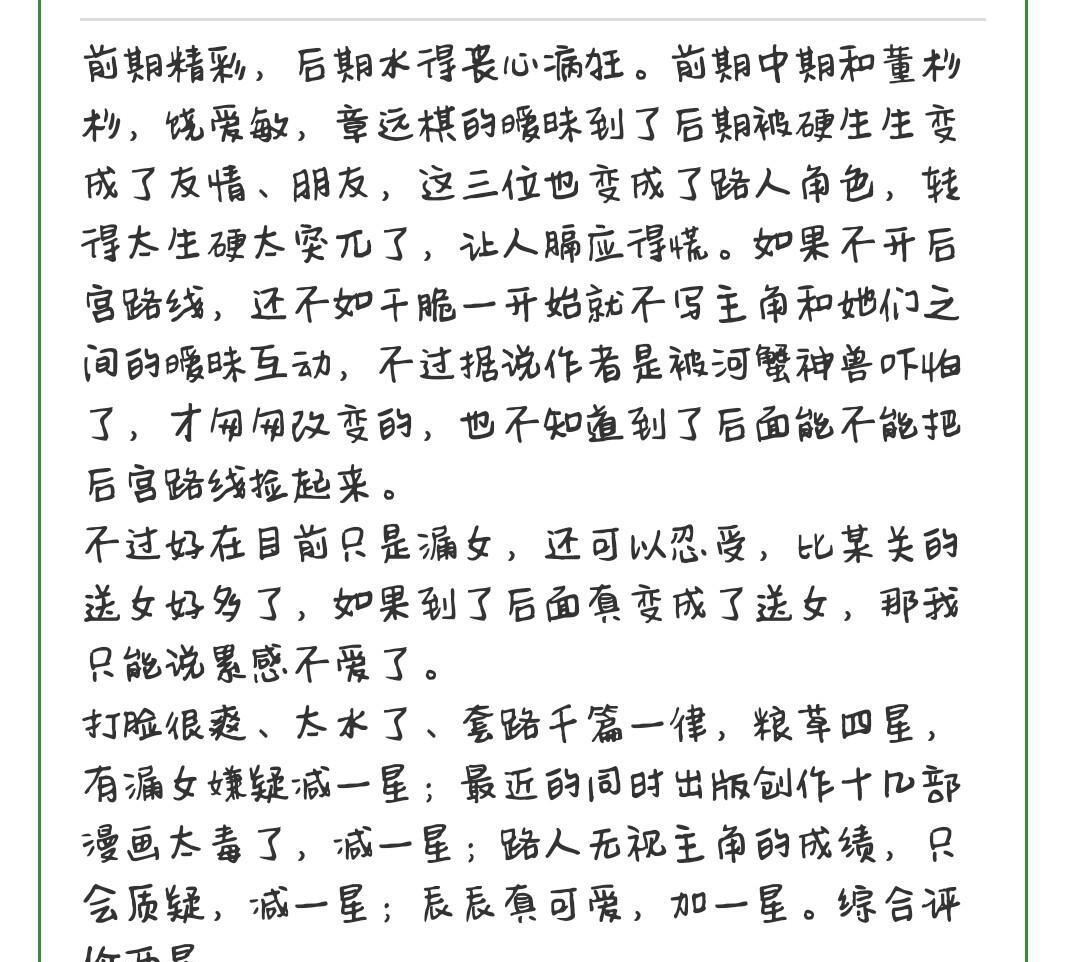 前期精彩，后期水得丧心病狂。前期中期和董杉
杉，饶爱敏，章远棋的暧昧到了后期被硬生生变
成了友情、朋友，这三位也变成了路人角色，转
得太生硬太突兀了，让人膈应得慌。如果不开后
宫路线，还不如干脆一开始就不写主角和她们之
间的暧昧互动，不过据说作者是被河蟹神兽吓怕
了，才匆匆改变的，也不知道到了后面能不能把
后宫路线捡起来。
不过好在目前只是漏女，还可以忍受，比某关的
送女好多了，如果到了后面真变成了送女，那我
只能说累感不爱了。
打脸很爽、太水了、套路千篇一律，粮草四星，
有漏女嫌疑减一星；最近的同时出版创作十几部
漫画太毒了，减一星；路人无视主角的成绩，只
会质疑，减一星；辰辰真可爱，加一星。综合评